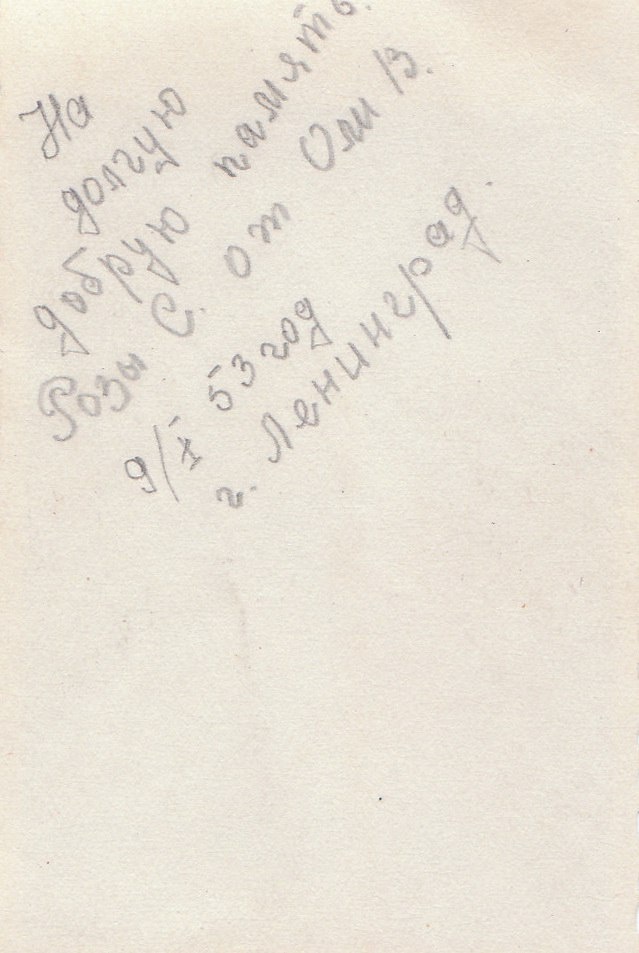 На
долгую
добрую память.
Розы С. от Оли В.
9/X 53 год
г. Ленинград.